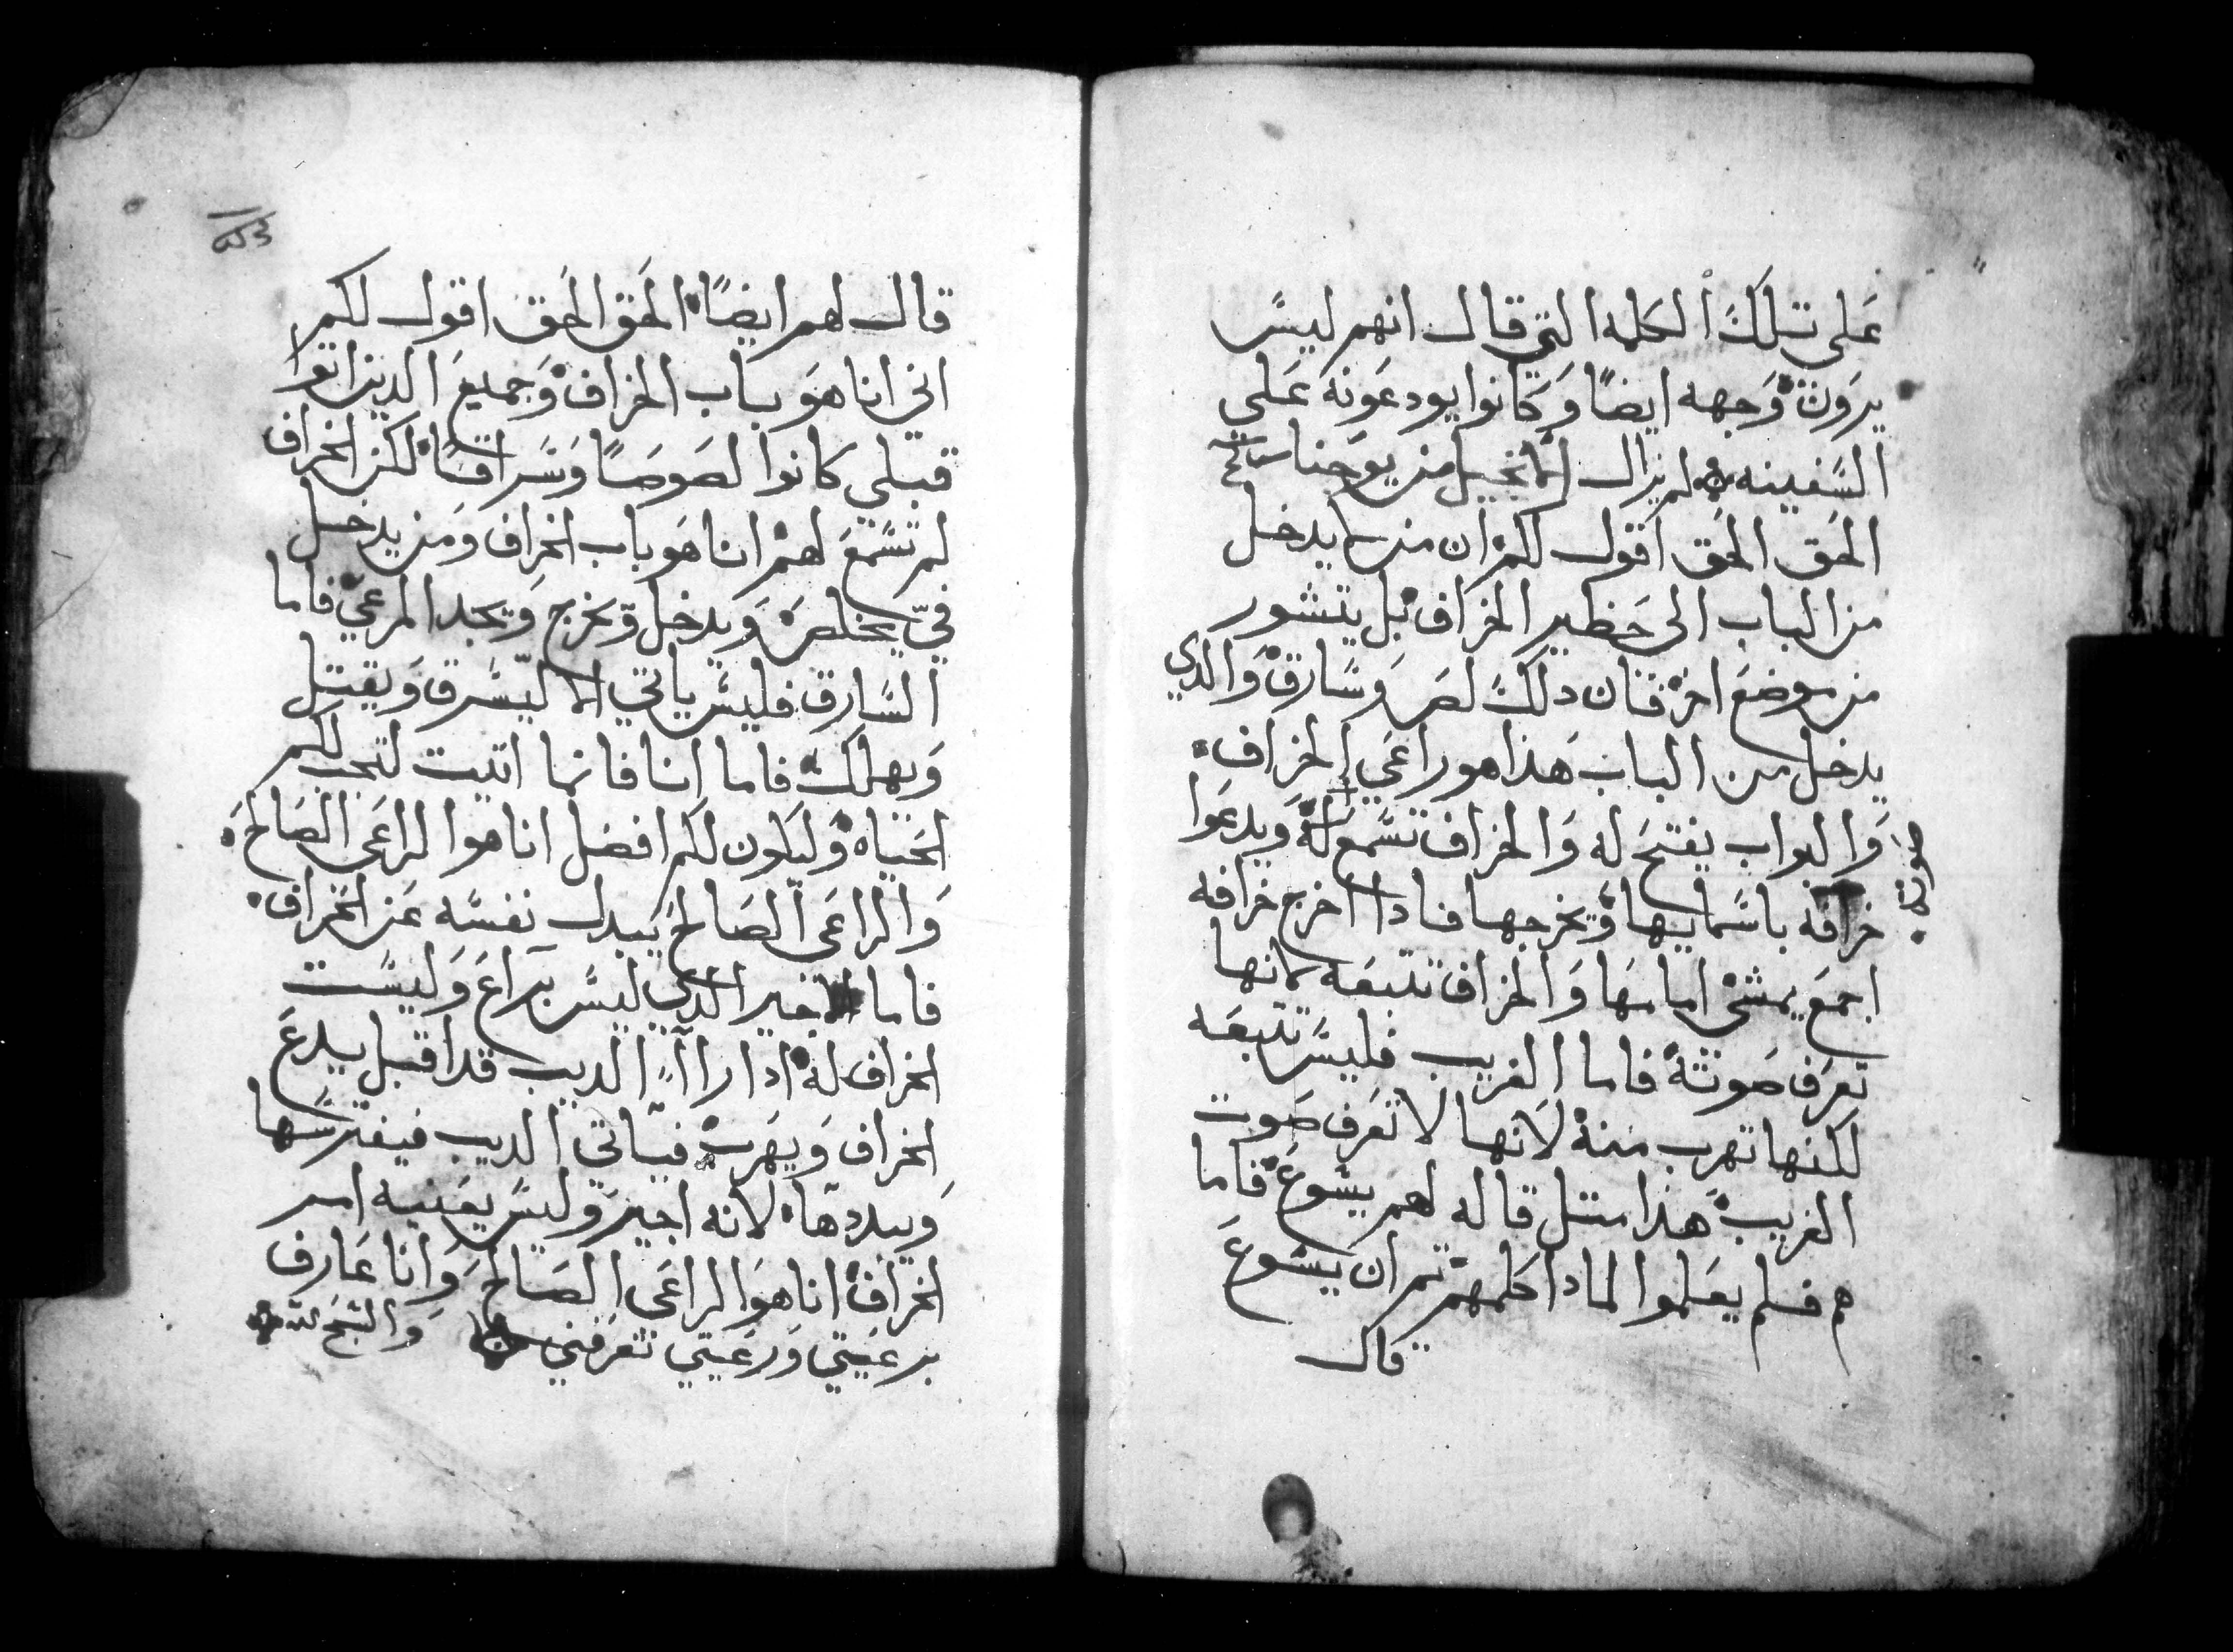 على تلك الكلمه التي قال انهم ليس
يرون وجهه ايضا وكانوا يودعونه على
السفينه لم يزال الانجيل من يوحنا
الحق الحق اقول لكم ان من لا يدخل
من الباب الى حظير الخراف بل يتشور
من موضع اخر فان دلك لص وسارق والدي
يدخل من الباب هذا هو راعي الخراف
والبواب يفتح له والخراف تسمع له ويدعوا
صوته
خرافه باسمايها ويخرجها فادا اخرج خرافه
اجمع يمشي امامها والخراف تتبعه لانها
تعرف صوته فاما الغريب فليس تتبعه
لكنها تهرب منه لانها لا تعرف صوت
الغريب هذا متل قاله لهم يشوع فاما
هم فلم يعلموا لمادا كلمهم تم ان يشوع
قال
قال لهم ايضا الحق الحق اقول لكم
اني انا هو باب الخراف وجميع الدين اتوا
قبلي كانوا لصوصا وسراقا لكن الخراف
لم تسمع لهم انا هو باب الخراف ومن يدخل
في يخلص ويدخل ويخرج ويجد المرعي فاما
السارق فليس ياتي الا ليسرق ويقتل
ويهلك فاما انا فانما اتيت لتجب لكم
الحياه وليكون لكم افضل انا هوا الراعى الصالح
والراعى الصالح يبدل نفسه عن الخراف
فاما الاجير الدي ليس براع وليست
الخراف له ادا راا الديب قد اقبل يدع
الخراف ويهرب فياتي الديب فيفترسها
ويبددها لانه اجير وليس يعنيه امر
الخراف انا هو الراعى الصالح وانا عارف
برعيتي ورعيتي تعرفني والسبح لله